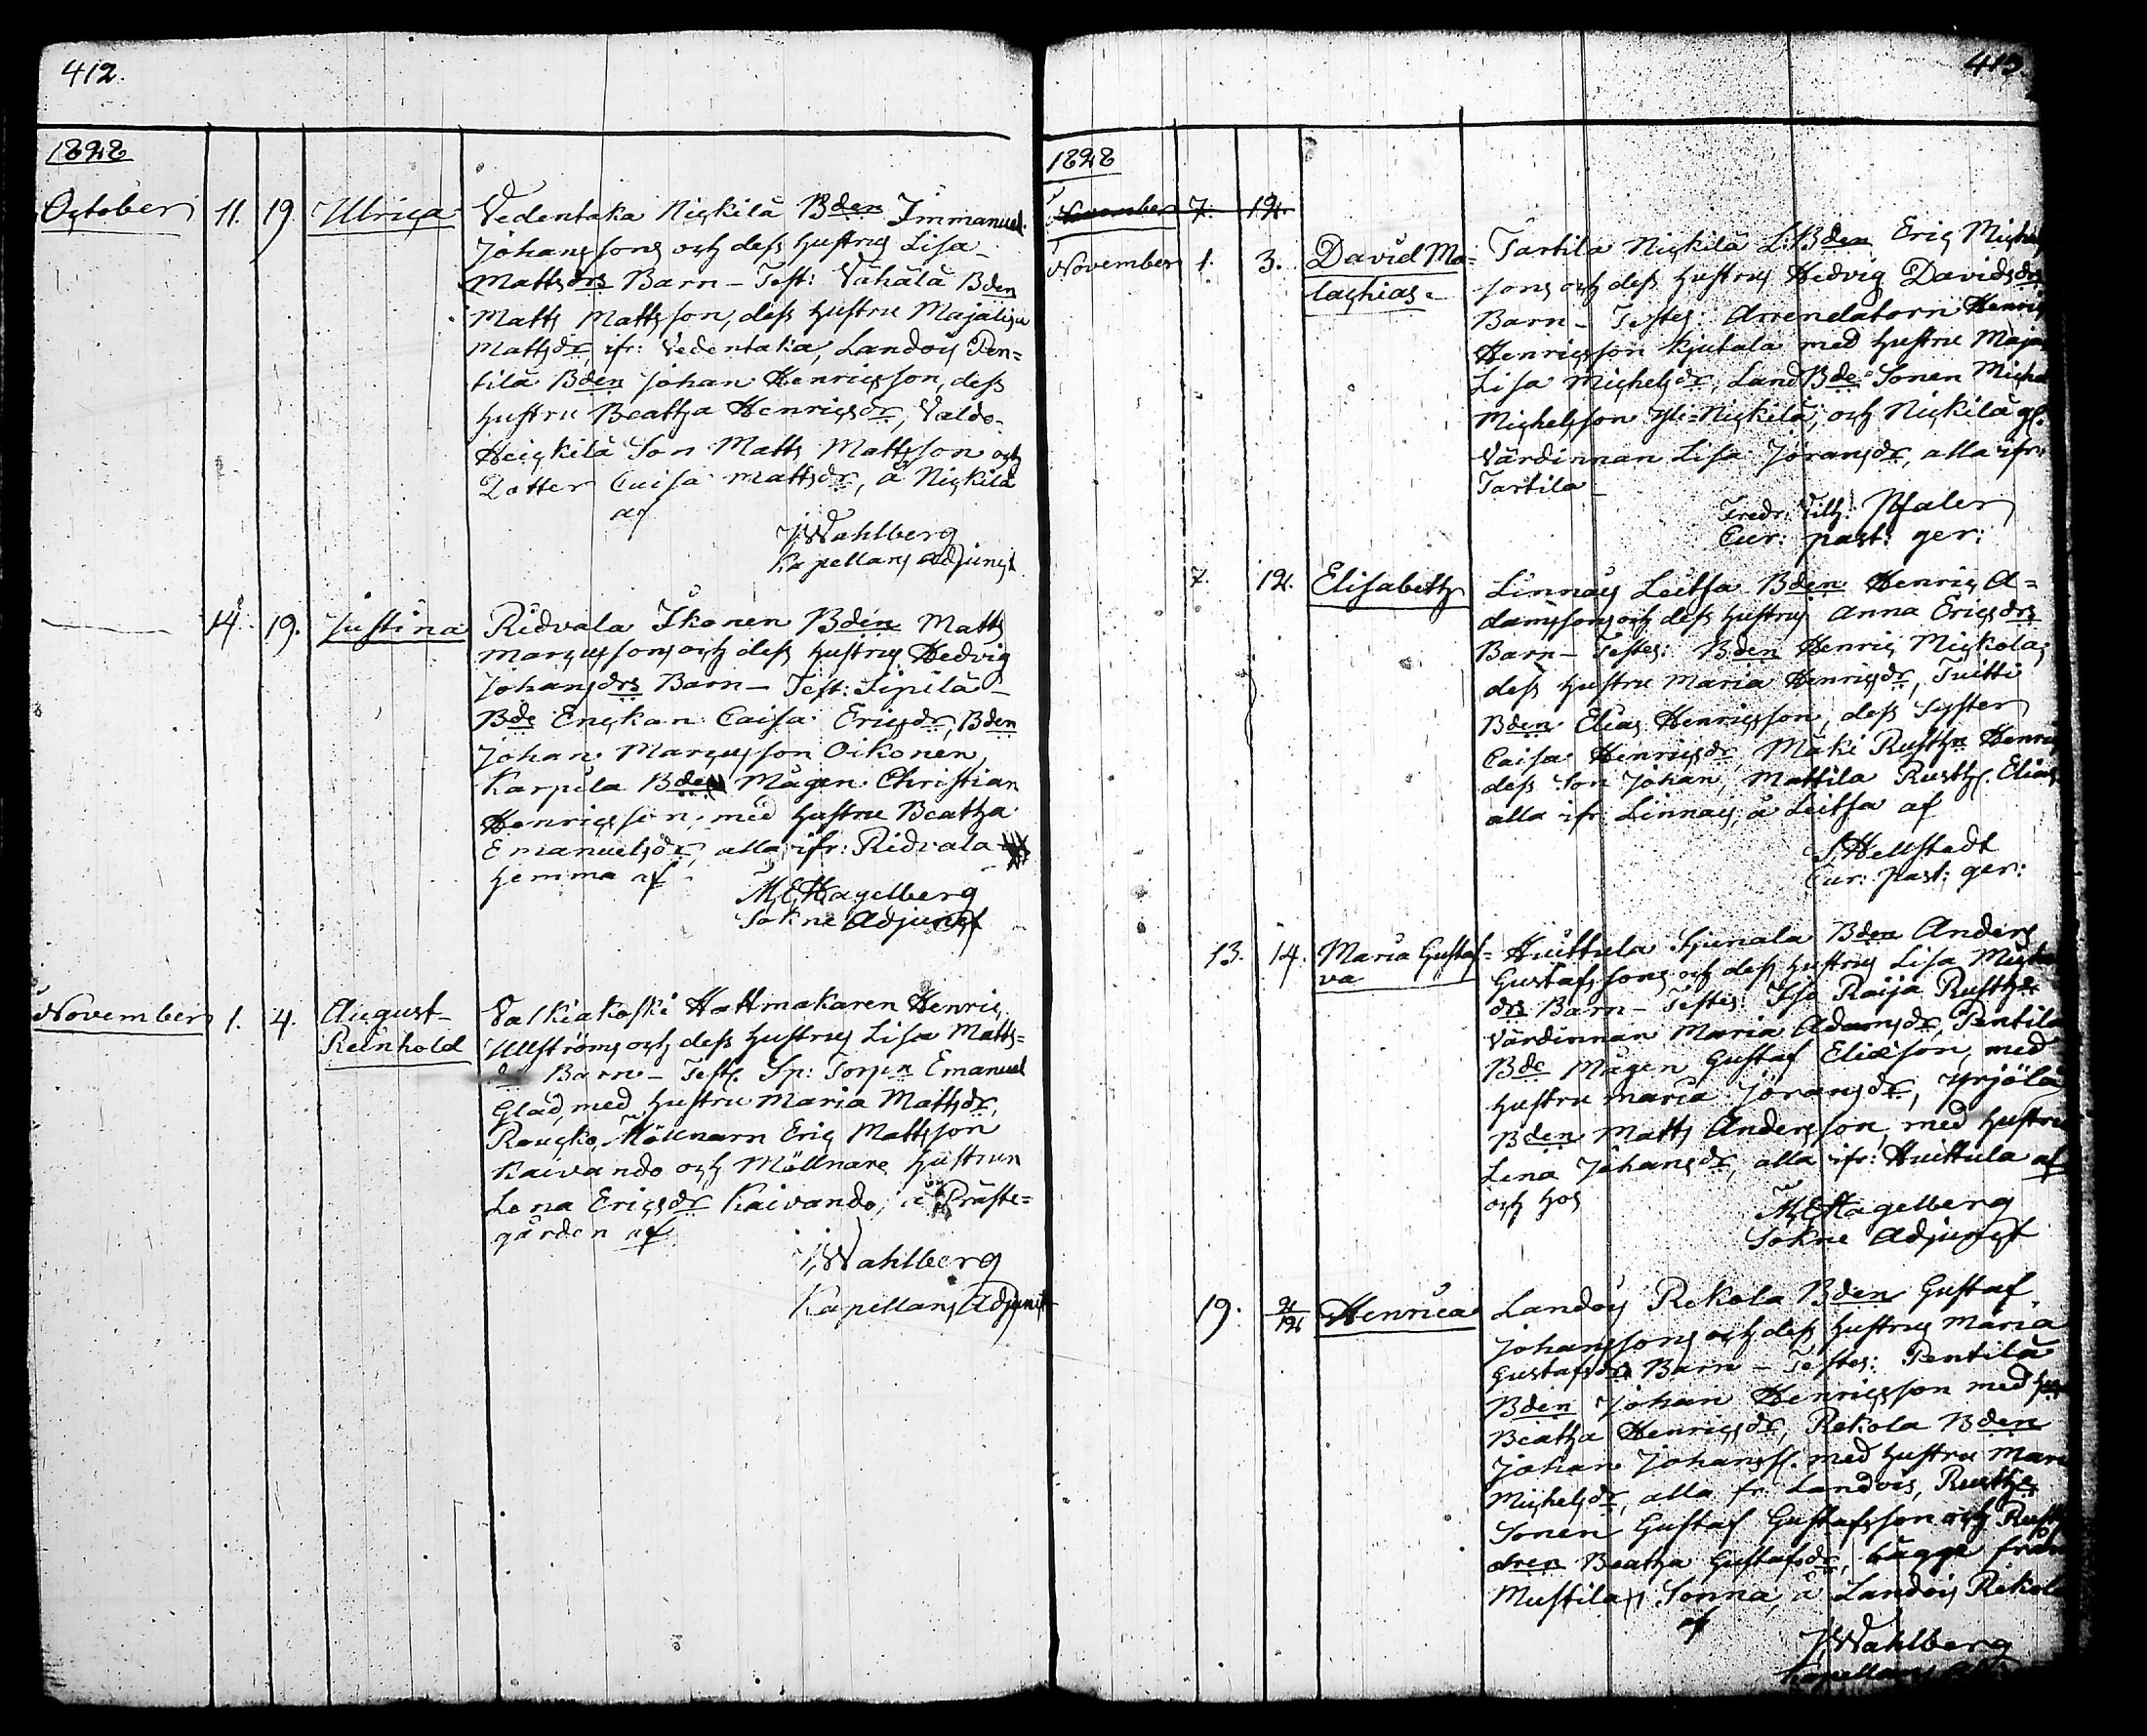 412.
1828
October 11. 19. Ulrica Vedentaka Nickilä Bden Immanuel
Johanssons och dess hustrus Lisa
Mattsdrs Barn – Test: Vähälä Bden
Matts Mattsson, dess hustru Majalisa
Mattsdr, ifr: Vedentaka, Landois Pen=
tilä Bden Johan Henricsson, dess
hustru Beatha Henricsdr, Valdo-
Heickilä Son Matts Mattsson och
Dotter Caisa Mattsdr, å Nickilä
af
J. Wahlberg
Kapellans Adjunct
14. 19. Justina Ridvala Ikonen Bden Matts
Marcussons och dess hustrus Hedvig
Johansdrs Barn – Test: Sipilä
Bde Enckan Caisa Ericsdr, Bden
Johan Marcusson Oikonen,
Karpila Bde Mågen Christian
Henricsson, med hustru Beatha
Emanuelsdr, alla ifr: Ridvala
hemma af
M.E. Hagelberg
Sokne Adjunct
November 1. 4. August Valkiakoski Hattmakaren Henric
Reinhold Ullströms och dess hustrus Lisa Matts=
dr Barn – Test. Sp: Torpn Emanuel
Glad, med hustru Maria Mattsdr,
Roucko, Möllnarn Eric Mattsson
Kaivando och Möllnare hustrun
Lena Ericsdr Kaivando, i Präste=
gården af
J. Wahlberg
Kapellans Adjunct
413.
1828
November 7. 12.
November 1. 3. David Ma= Tartila Nickilä L:Bden Eric Michels
lachias sons och dess hustrus Hedvig Davidsdrs
Barn – Testes: Arrendatorn Henric
Henricsson Kjutala med hustru Maja
Lisa Michelsdr, Land Bde Sonen Michel
Michelsson Yli-Nickilä, och Nickilä gl.
Värdinnan Lisa Jöransdr, alla ifr:
Tartila
Fredr: Vilh: Pfaler
Cur: past: ger:
7. 12. Elisabeth Linnais Leitsa Bden Henric A=
damssons och dess hustrus Anna Ericsdrs
Barn – Testes: Bden Henric Mickola,
dess hustru Maria Henricsdr, Tuitti
Bden Elias Henricsson, dess Syster
Caisa Henricsdr, Mäki Rusthn Henric
dess Son Johan, Mattila Rusth. Elias
alla ifr Linnais, å Leitsa af
S. Hellstedt
Cur: past: ger:
13. 14. Maria Gustaf= Huittula Bden Anders
va Gustafssons och dess hustrus Lisa Michels
drs Barn – Testes: Iso Raija Rusth
Värdinnan Maria Adamsdr, Pentilä
Bde Mågen Gustaf Eliæson, med
hustru Maria Jöransdr, Yrjölä
Bden Matts Andersson, med hustru
Lena Johansdr, alla ifr: Huittula af
och hos
M.E. Hagelberg
Sokne Adjunct
19. 2/12 Henrica Landois Rekola Bden Gustaf
Johanssons och dess hustrus Maria
Gustafsdrs Barn – Testes: Pentilä
Bden Johan Henricsson med hus
Beatha Henricsdr, Rekola Bden
Johan Johanss. med hustru Maria
Michelsdr, alla fr: Landois, Rusth
Sonen Gustaf Gustafsson och Rusth
dren Beatha Gustafsdr, bägge från
Mustila i Sonna, å Landois Rekola
af
J. Wahlberg
Kapellans Adj: